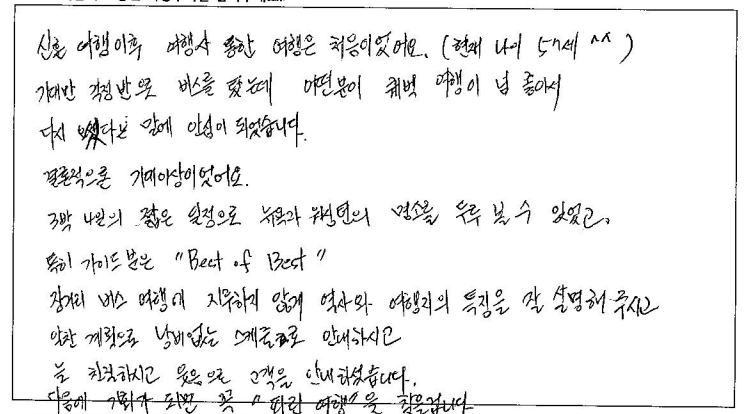 신혼 여행이후 여행사 통한 여행은 처음이었어요. (현재 나이 57세 ^^)
기대반 걱정반으로 버스를 탔는데 어떤분이 퀘벡 여행이 넘 좋아서
다시 오셨다는 말에 안심이 되었습니다.
결론적으론 기대이상이었어요.
3박 4일의 짧은 일정으로 뉴욕과 워싱턴의 명소를 두루 볼 수 있었고,
특히 가이드분은 "Best of Best"
장거리 버스 여행에 지루하지 않게 역사와 여행지의 특징을 잘 설명해 주시고
알찬 계획으로 낭비없는 스케줄로 안내하시고
늘 친절하시고 웃음으로 고객을 안내하셨습니다.
다음에 기회가 되면 꼭 "파란 여행"을 찾을겁니다.